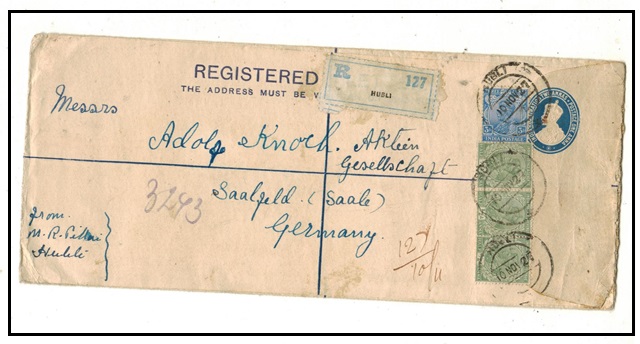 REGISTERED
THE ADDRESS MUST BE
R
127
HUBLI
Messrs
Adolf Knoch. Aktien
Gesellschaft
Saalfeld. (Saale)
Germany.
3293
from
M. R.
Hubli
127
10/11
HUBLI
10 NOV
HUBLI
HUBLI
10 NOV
INDIA POSTAGE